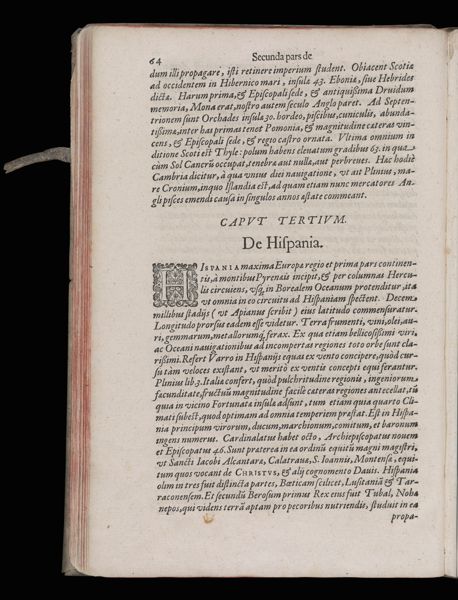 64 Secunda pars de
dum illi propagare, isti retinere imperium student. Obiacent Scotiæ
ad occidentem in Hibernico mari, insulæ 43. Eboniæ, siue Hebrides
dictæ. Harum prima, & Episcopali sede, & antiquissima Druidum
memoria, Mona erat, nostro autem seculo Anglo paret. Ad Septen-
trionem sunt Orchades insulæ 30. hordeo, piscibus, cuniculis, abunda-
tissimæ, inter has primas tenet Pomonia, & magnitudine cæteras vin-
cens, & Episcopali sede, & regio castro ornata. Vltima omnium in
ditione Scoti est Thyle: polum habens eleuatum gradibus 63. in qua
cùm Sol Cancrũ occupat, tenebræ aut nullæ, aut perbreues. Hac hodiè
Cambria dicitur, à qua vnius diei nauigatione, vt ait Plinius, ma-
re Cronium, in quo Islandia est, ad quam etiam nunc mercatores An-
gli pisces emendi causa in singulos annos æstate commeant.
CAPVT TERTIVM.
De Hispania.
HISPANIA maxima Europæ regio et prima pars continen-
tis, à montibus Pyrenæis incipit, & per columnas Hercu-
lis circuiens, vsq; in Borealem Oceanum protenditur, ita
vt omnia in eo circuitu ad Hispaniam spectent. Decem
millibus stadijs (vt Apianus scribit) eius latitudo commensuratur.
Longitudo prorsus eadem esse videtur. Terra frumenti, vini, olei, au-
ri, gemmarum, metallorumq; ferax. Ex qua etiam bellicosissimi viri,
ac Oceani nauigationibus ad incompertas regiones toto orbe sunt cla-
rissimi. Refert Varro in Hispanijs equas ex vento concipere, quòd cur-
su tàm veloces existant, vt meritò ex ventis concepti equi ferantur.
Plinius lib 3. Italiæ confert, quòd pulchritudine regionis, ingeniorum,
facunditate, fructuũ magnitudine facilè cæteras regiones antecellat, tũ
quia in vicino Fortunatæ insulæ adsunt, tum etiam quia quarto Cli-
mati subest, quod optimam ad omnia temperiem præstat. Est in Hispa-
nia principum virorum, ducum, marchionum, comitum, et baronum
ingens numerus. Cardinalatus habet octo, Archiepiscopatus nouem
et Episcopatus 46. Sunt præterea in ea ordinũ equitũ magni magistri,
vt Sancti Iacobi Alcantara, Calatraua, S. Ioannis, Montensæ, equi-
tum quos vocant de CHRISTVS, & alij cognomento Dauis. Hispania
olim in tres fuit distincta partes, Bœticam scilicet, Lusitaniã & Tar-
raconensem. Et secundũ Berosum primus Rex eius fuit Tubal, Nohæ
nepos, qui videns terrã aptam pro pecoribus nutriendis, studuit in ea
propa-